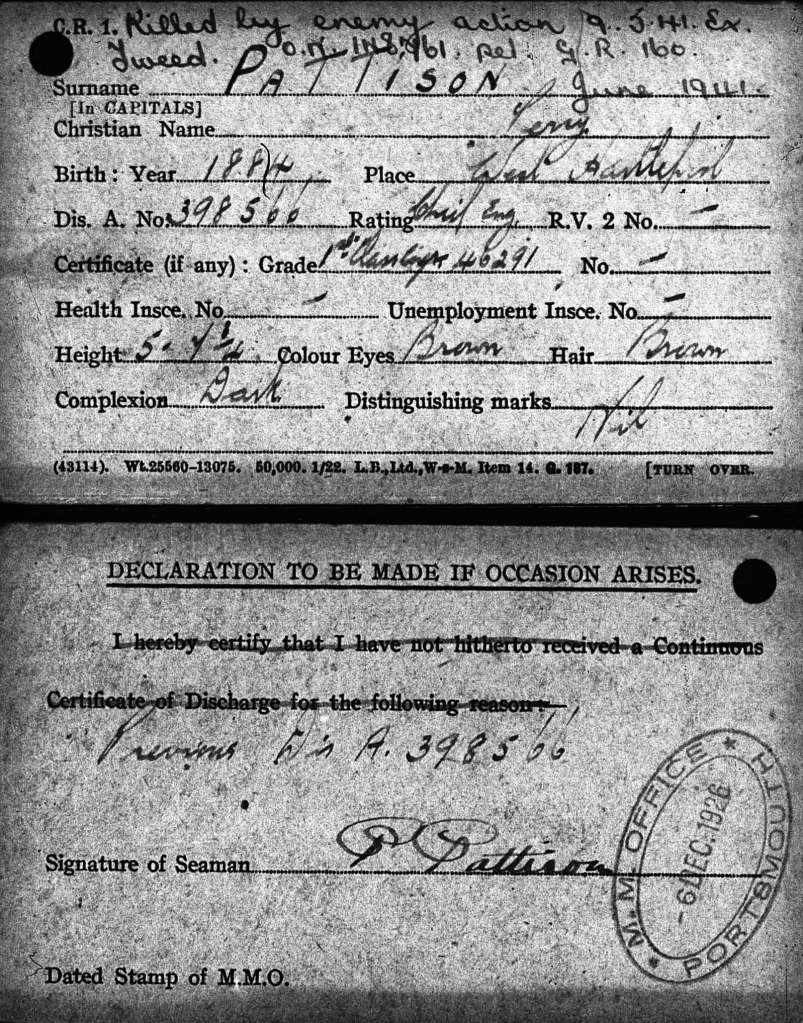 C.R. 1. Killed by enemy action 9.5.41. Ex.
Tweed. O.N. 148761. rel. G.R. 160.
Surname PATTISON June 1941.
[In CAPITALS]
Christian Name Percy
Birth: Year 1884 Place West Hartlepool
Dis. A. No: 398566 Rating Chief Eng R.V. 2 No. —
Certificate (if any): Grade 1st Class 46291 No. —
Health Insce. No. — Unemployment Insce. No. —
Height 5-7¼ Colour Eyes Brown Hair Brown
Complexion Dark Distinguishing marks
Nil
(43114). Wt.25560-13075. 50,000. 1/22. L.B.,Ltd.,W-s-M. Item 14. G. 187. [TURN OVER.
DECLARATION TO BE MADE IF OCCASION ARISES.
I hereby certify that I have not hitherto received a Continuous
Certificate of Discharge for the following reason:—
Previous Dis A. 398566
M. M. OFFICE
-6 DEC. 1926
PORTSMOUTH
Signature of Seaman P Pattison
Dated Stamp of M.M.O.